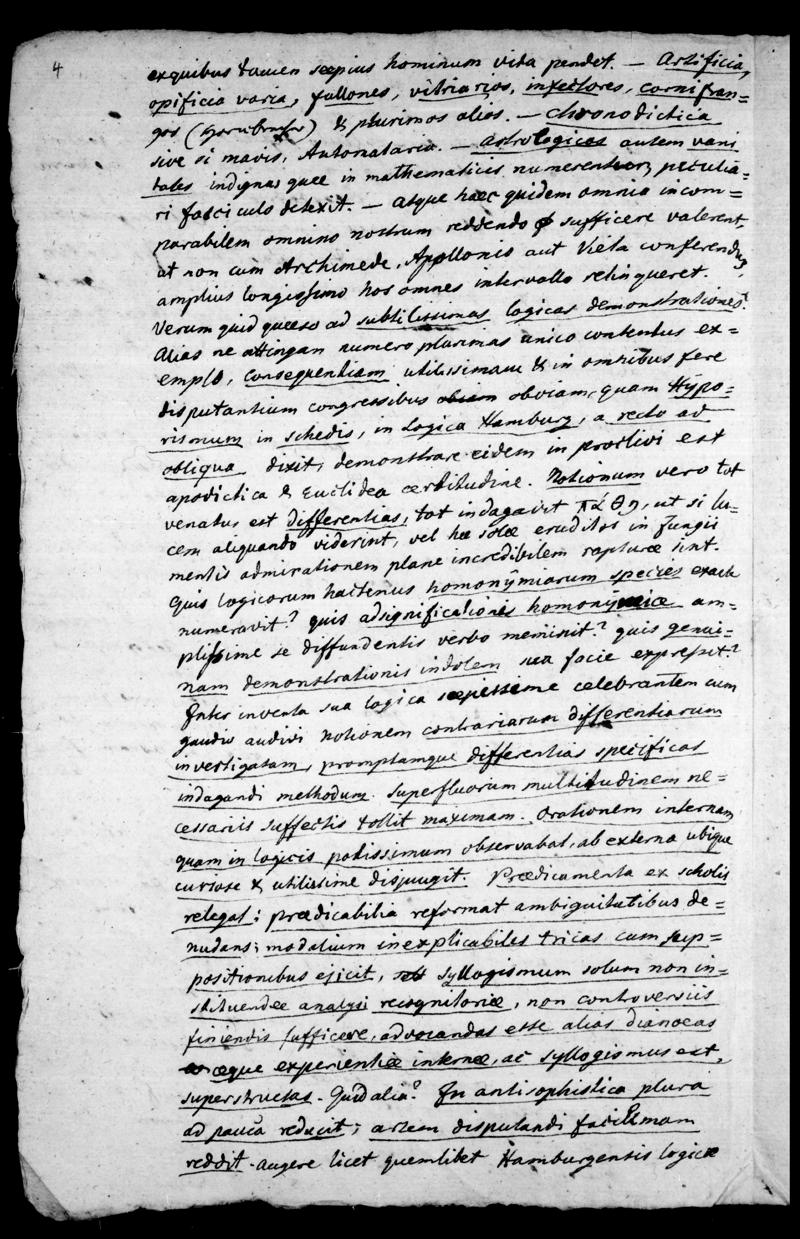 4
exquibus tamen sæpius hominum vita pendet. — Artificia,
opificia varia, fullones, vitriarios, infectores, cornifran=
gos () & plurimos alios. — Chronodictica
sive si mavis, Automataria. — Astrologicas autem vani
tates indignas quæ in mathematicis numerentur, peculia=
ri fasciculo detexit. — Atque haec quidem omnia incom=
parabilem omnino nostrum reddendo sufficere valerent,
at non cum Archimede, Apollonio aut Vieta conferendus,
amplius longissimo hos omnes intervallo relinqueret.
Verum quid quæso ad subtilissimas logicas demonstrationes?
Alias ne attingam numero plurimas unico contentus ex=
emplo, consequentiam utilissimam & in omnibus fere
disputantium congressibus obviam, quam Hypo=
rismum in schedis, in Logica Hamburg, a recto ad
obliqua dixit, demonstrare eidem in proclivi est
apodictica & Euclidea certitudine. Notionum vero tot
venatus est differentias, tot indagavit πάθη, ut si lu=
cem aliquando viderint, vel hæ solæ eruditos in fungi
mentis admirationem plane incredibilem rapturæ sint.
Quis logicorum hactenus homonymiarum species exacte
numeravit? quis adsignificationis homonymiæ am=
plissime se diffundentis verbo meminit? quis genui=
nam demonstrationis indolem sua facie expressit?
Inter inventa sua logica sæpissime celebrantem cum
gaudio audivi notionem contrariarum differentiarum
investigatam, promptamque differentias specificas
indagandi methodum. Superfluorum multitudinem ne=
cessariis suffectis tollit maximam. Orationem internam
quam in logicis potissimum observabat, ab externa ubique
curiose & utilissime disjungit. Prædicamenta ex scholis
relegat; prædicabilia reformat ambiguitatibus de=
nudans; modalium inexplicabiles tricas cum sup=
positionibus ejicit, syllogismum solum non in=
stituendæ analysi recognitoriæ, non controversiis
finiendis sufficere, advocandas esse alias dianoeas
æque experientiæ internæ, ac syllogismus est,
superstructas. Quid alia? In antisophistica plura
ad pauca reducit; artem disputandi facillimam
reddit. Augere licet quemlibet Hamburgensis logicæ